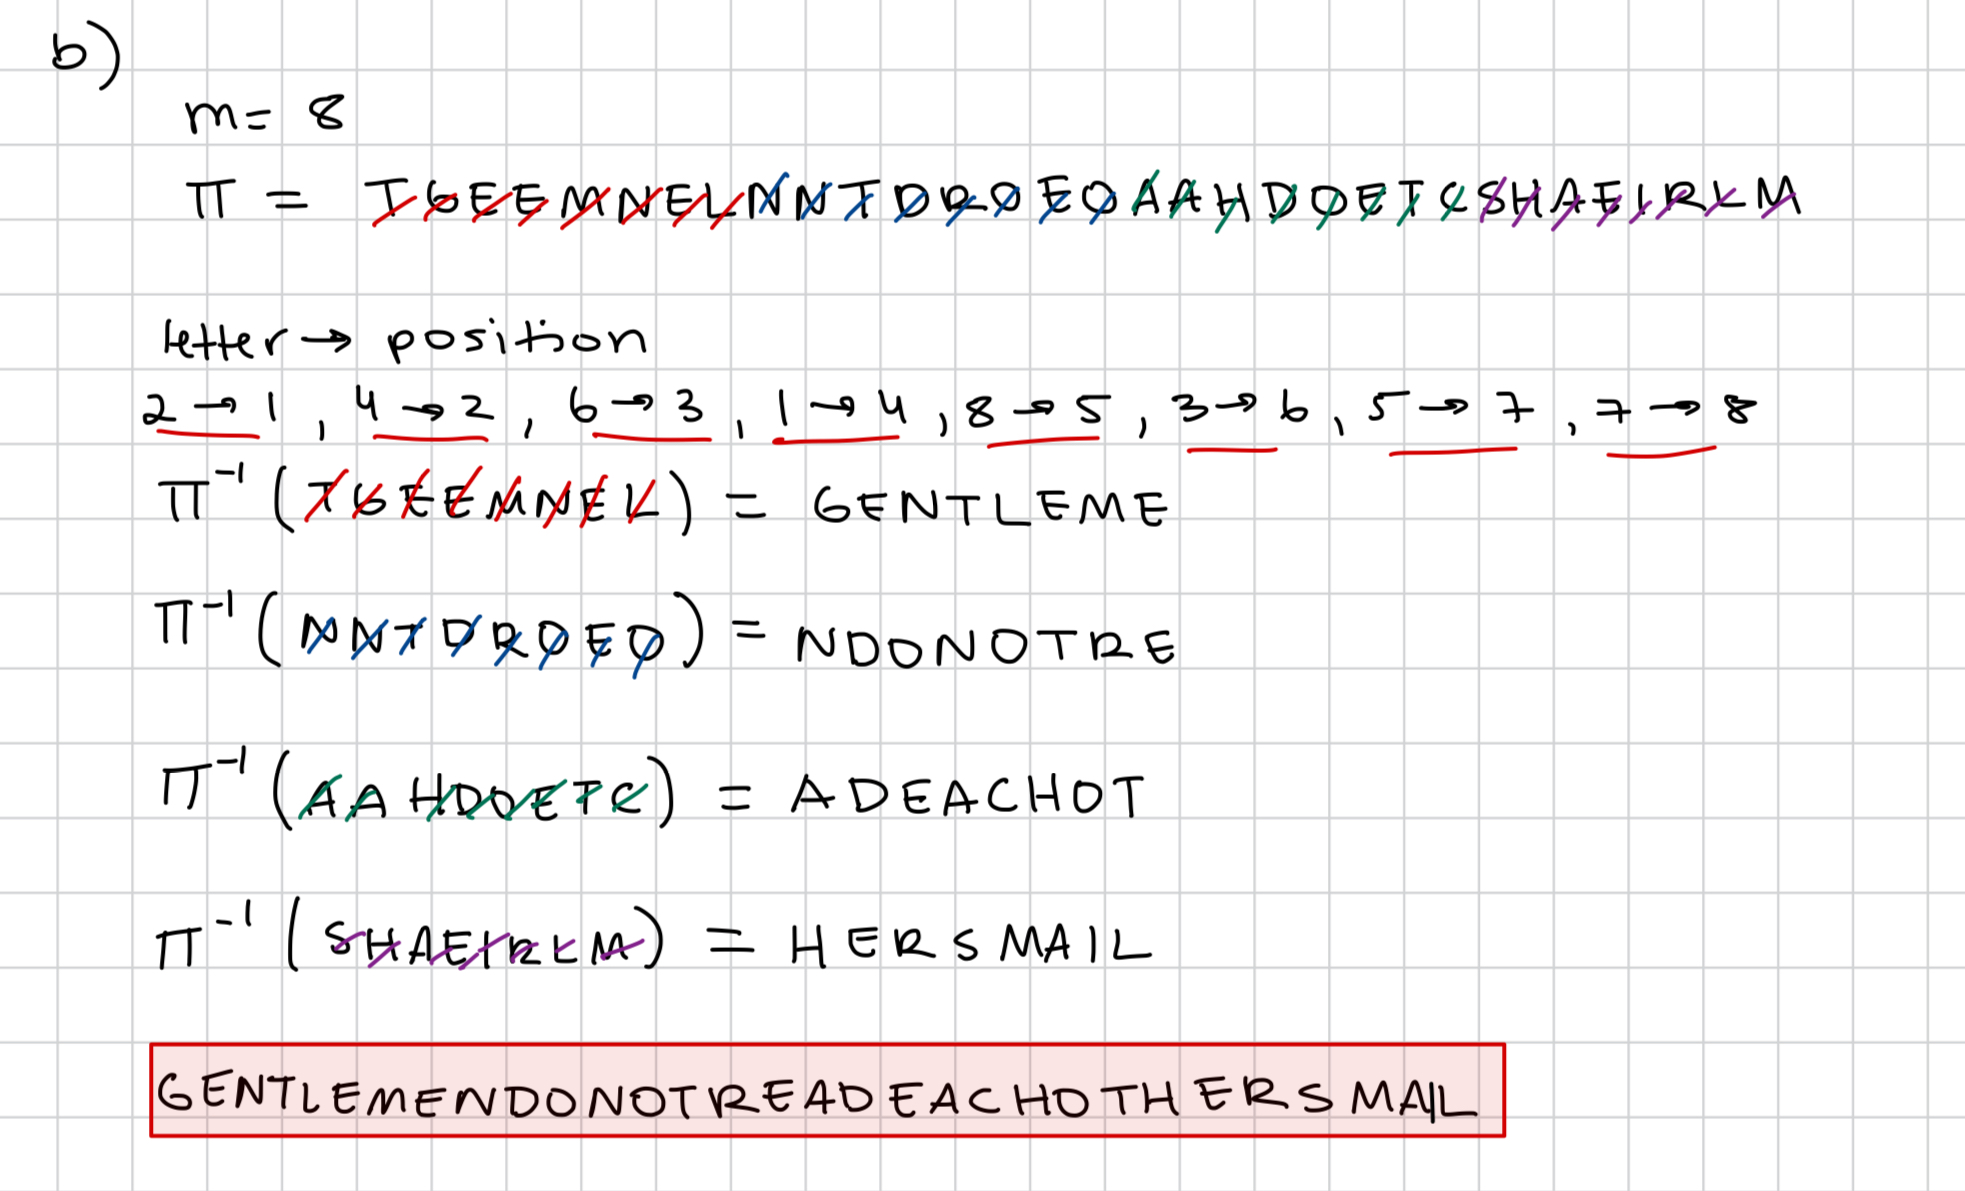 b)
m= 8
π = TGEEMNELNNTDROEOAAHDOETCSHAEIRLM
letter → position
2 → 1 , 4 → 2 , 6 → 3 , 1 → 4 , 8 → 5 , 3 → 6 , 5 → 7 , 7 → 8
π⁻¹ (TGEEMNEL) = GENTLEME
π⁻¹ (NNTDROEO) = NDONOTRE
π⁻¹ (AAHDOETC) = ADEACHOT
π⁻¹ (SHAEIRLM) = HERSMAIL
GENTLEMENDONOTREADEACHOTHERSMAIL